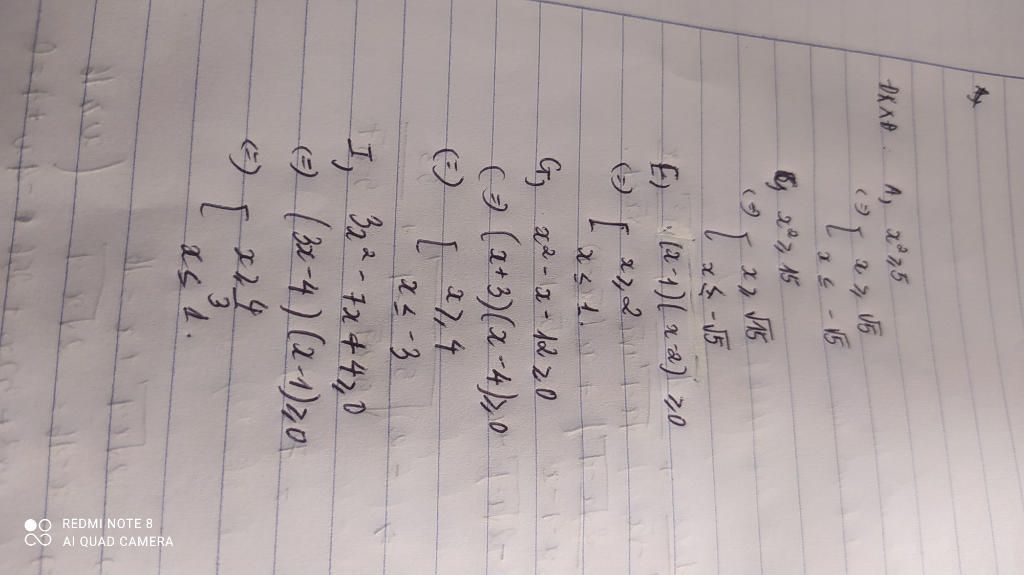 ĐKXĐ. A, x² ≥ 5
(=) [ x ≥ √5
x ≤ -√5
x² ≥ 15
(=) [ x ≥ √15
x ≤ -√15
E, (x-1)(x-2) ≥ 0
(=) [ x ≥ 2
x ≤ 1.
G, x² - x - 12 ≥ 0
(=) (x+3)(x-4) ≥ 0
(=) [ x ≥ 4
x ≤ -3
I, 3x² - 7x + 4 ≥ 0
(=) (3x-4)(x-1) ≥ 0
(=) [ x ≥ 4/3
x ≤ 1.
REDMI NOTE 8
AI QUAD CAMERA